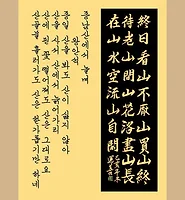 終日看山不厭山買山終
待老山間山花落盡山長
在山水空流山自閒
종남산에서 놀며
왕안석
종일 산을 봐도 산이 싫지 않아
산을 사서 산에서 늙어가리
산에 핀 꽃 떨어져도 산은 그대로요
산골물 흘러가도 산은 한가롭기만 하네